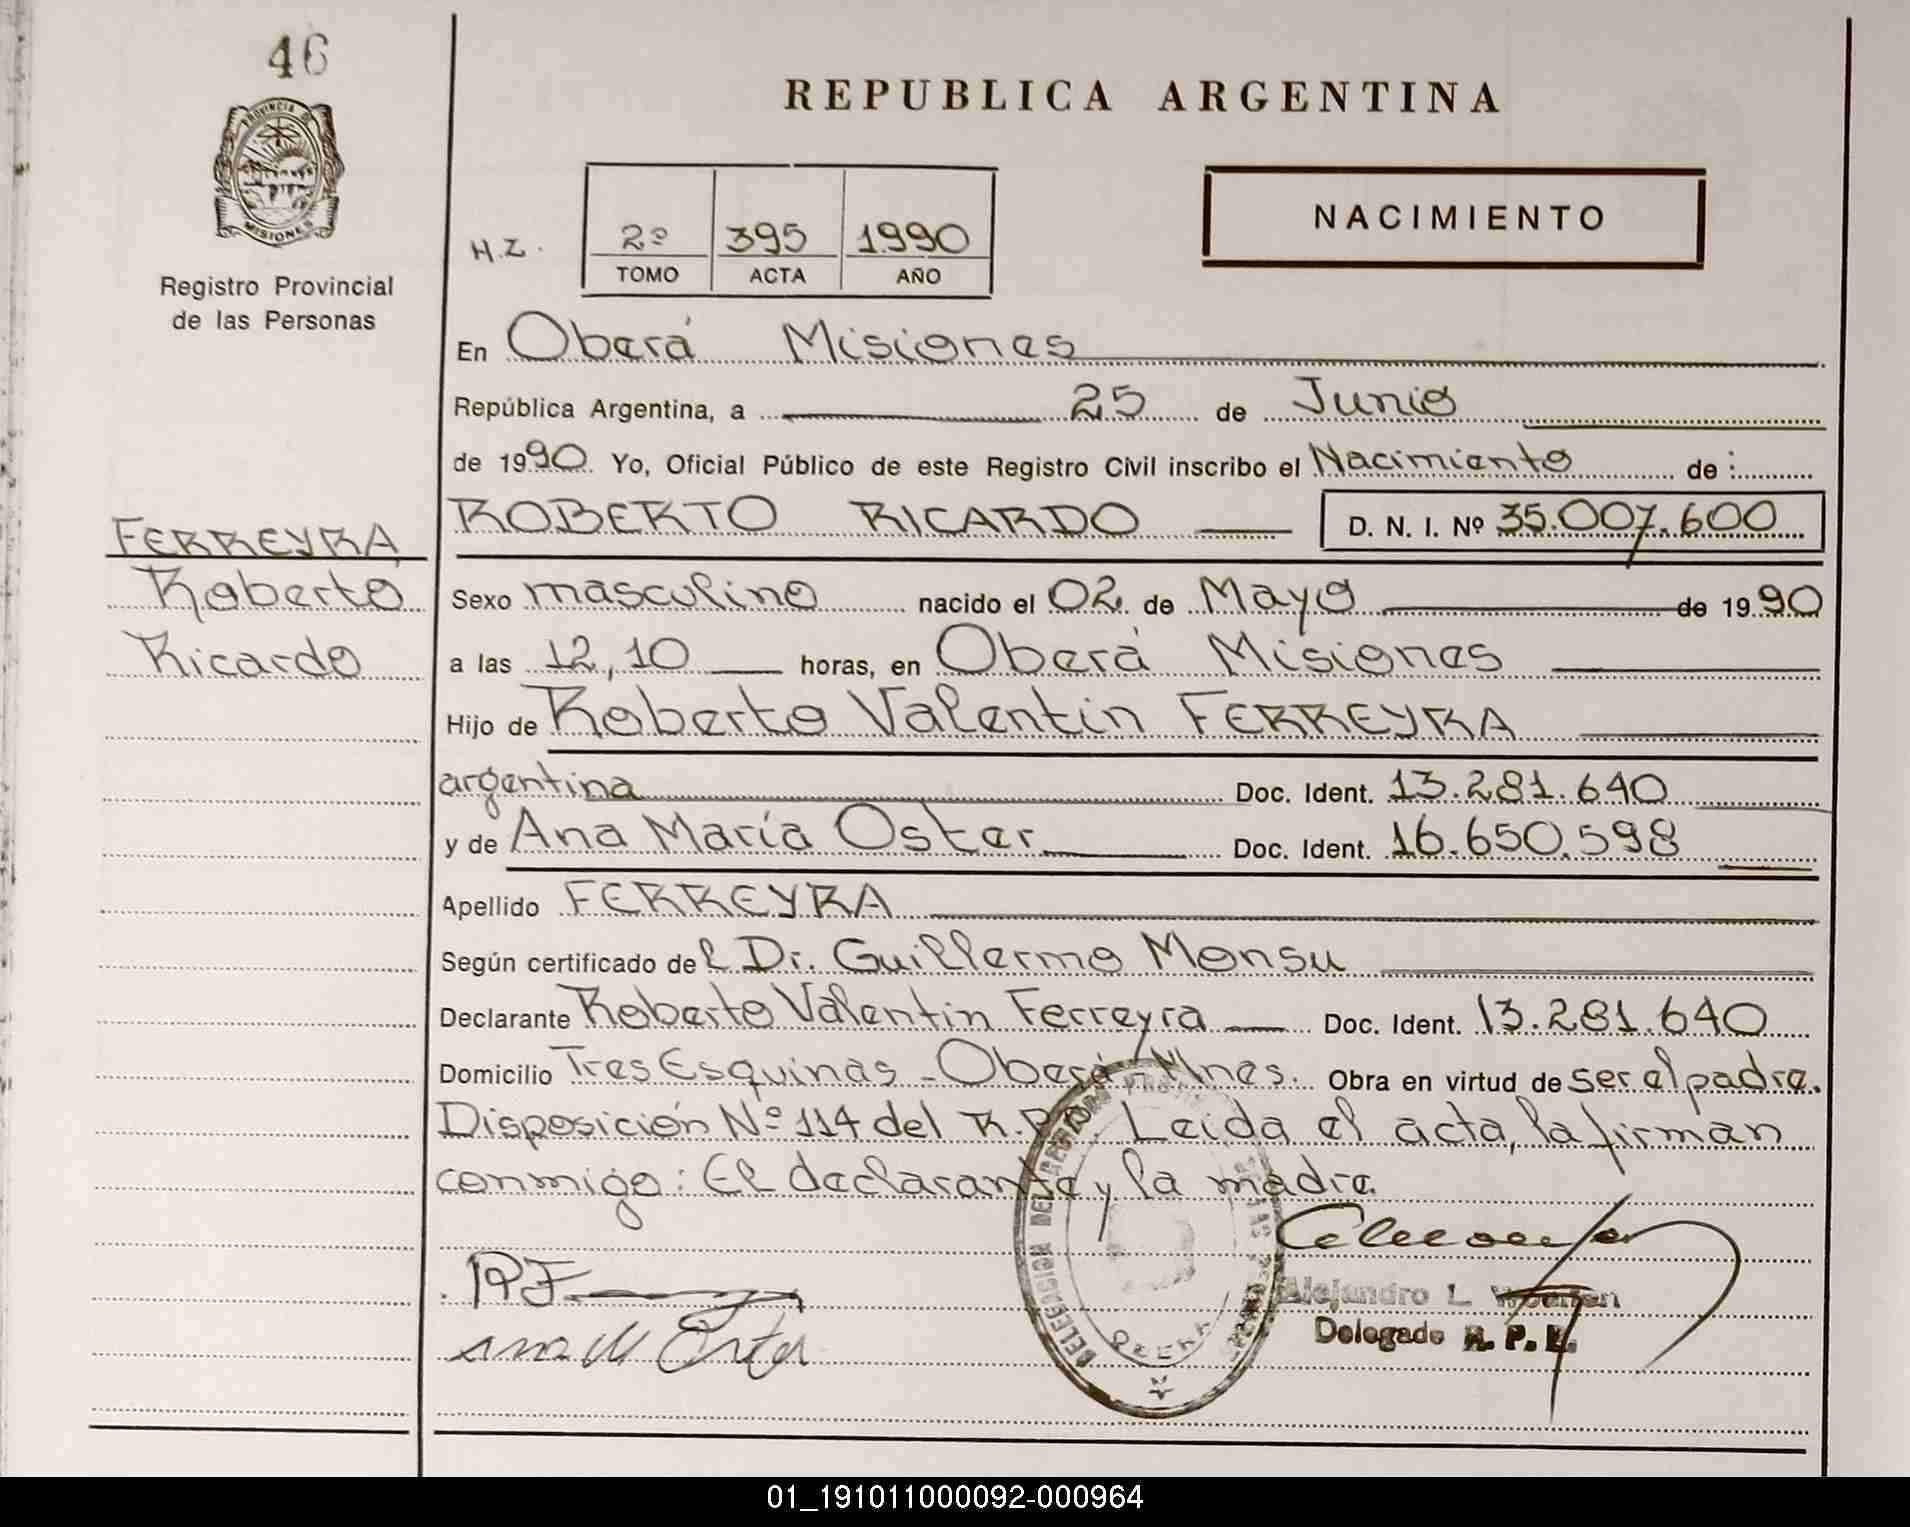 46
REPUBLICA ARGENTINA
PROVINCIA DE
MISIONES
Registro Provincial
de las Personas
H.Z.
2º 395 1990
TOMO ACTA AÑO
NACIMIENTO
En Oberá Misiones
República Argentina, a 25 de Junio
de 1990. Yo, Oficial Público de este Registro Civil inscribo el Nacimiento de:
ROBERTO RICARDO D. N. I. Nº 35.007.600
FERREYRA
Roberto
Ricardo
Sexo masculino nacido el 02 de Mayo de 1990
a las 12,10 horas, en Oberá Misiones
Hijo de Roberto Valentin FERREYRA
argentina Doc. Ident. 13.281.640
y de Ana María Oster Doc. Ident. 16.650.598
Apellido FERREYRA
Según certificado del Dr. Guillermo Monsu
Declarante Roberto Valentin Ferreyra Doc. Ident. 13.281.640
Domicilio Tres Esquinas - Oberá - Mnes. Obra en virtud de ser el padre.
Disposición Nº 114 del R.P.P. Leida el acta, la firman
conmigo: El declarante y la madre.
DELEGACION DEL REGISTRO PROVINCIAL DE LAS PERSONAS
OBERA
Alejandro L.
Delegado R. P. P.
01_191011000092-000964